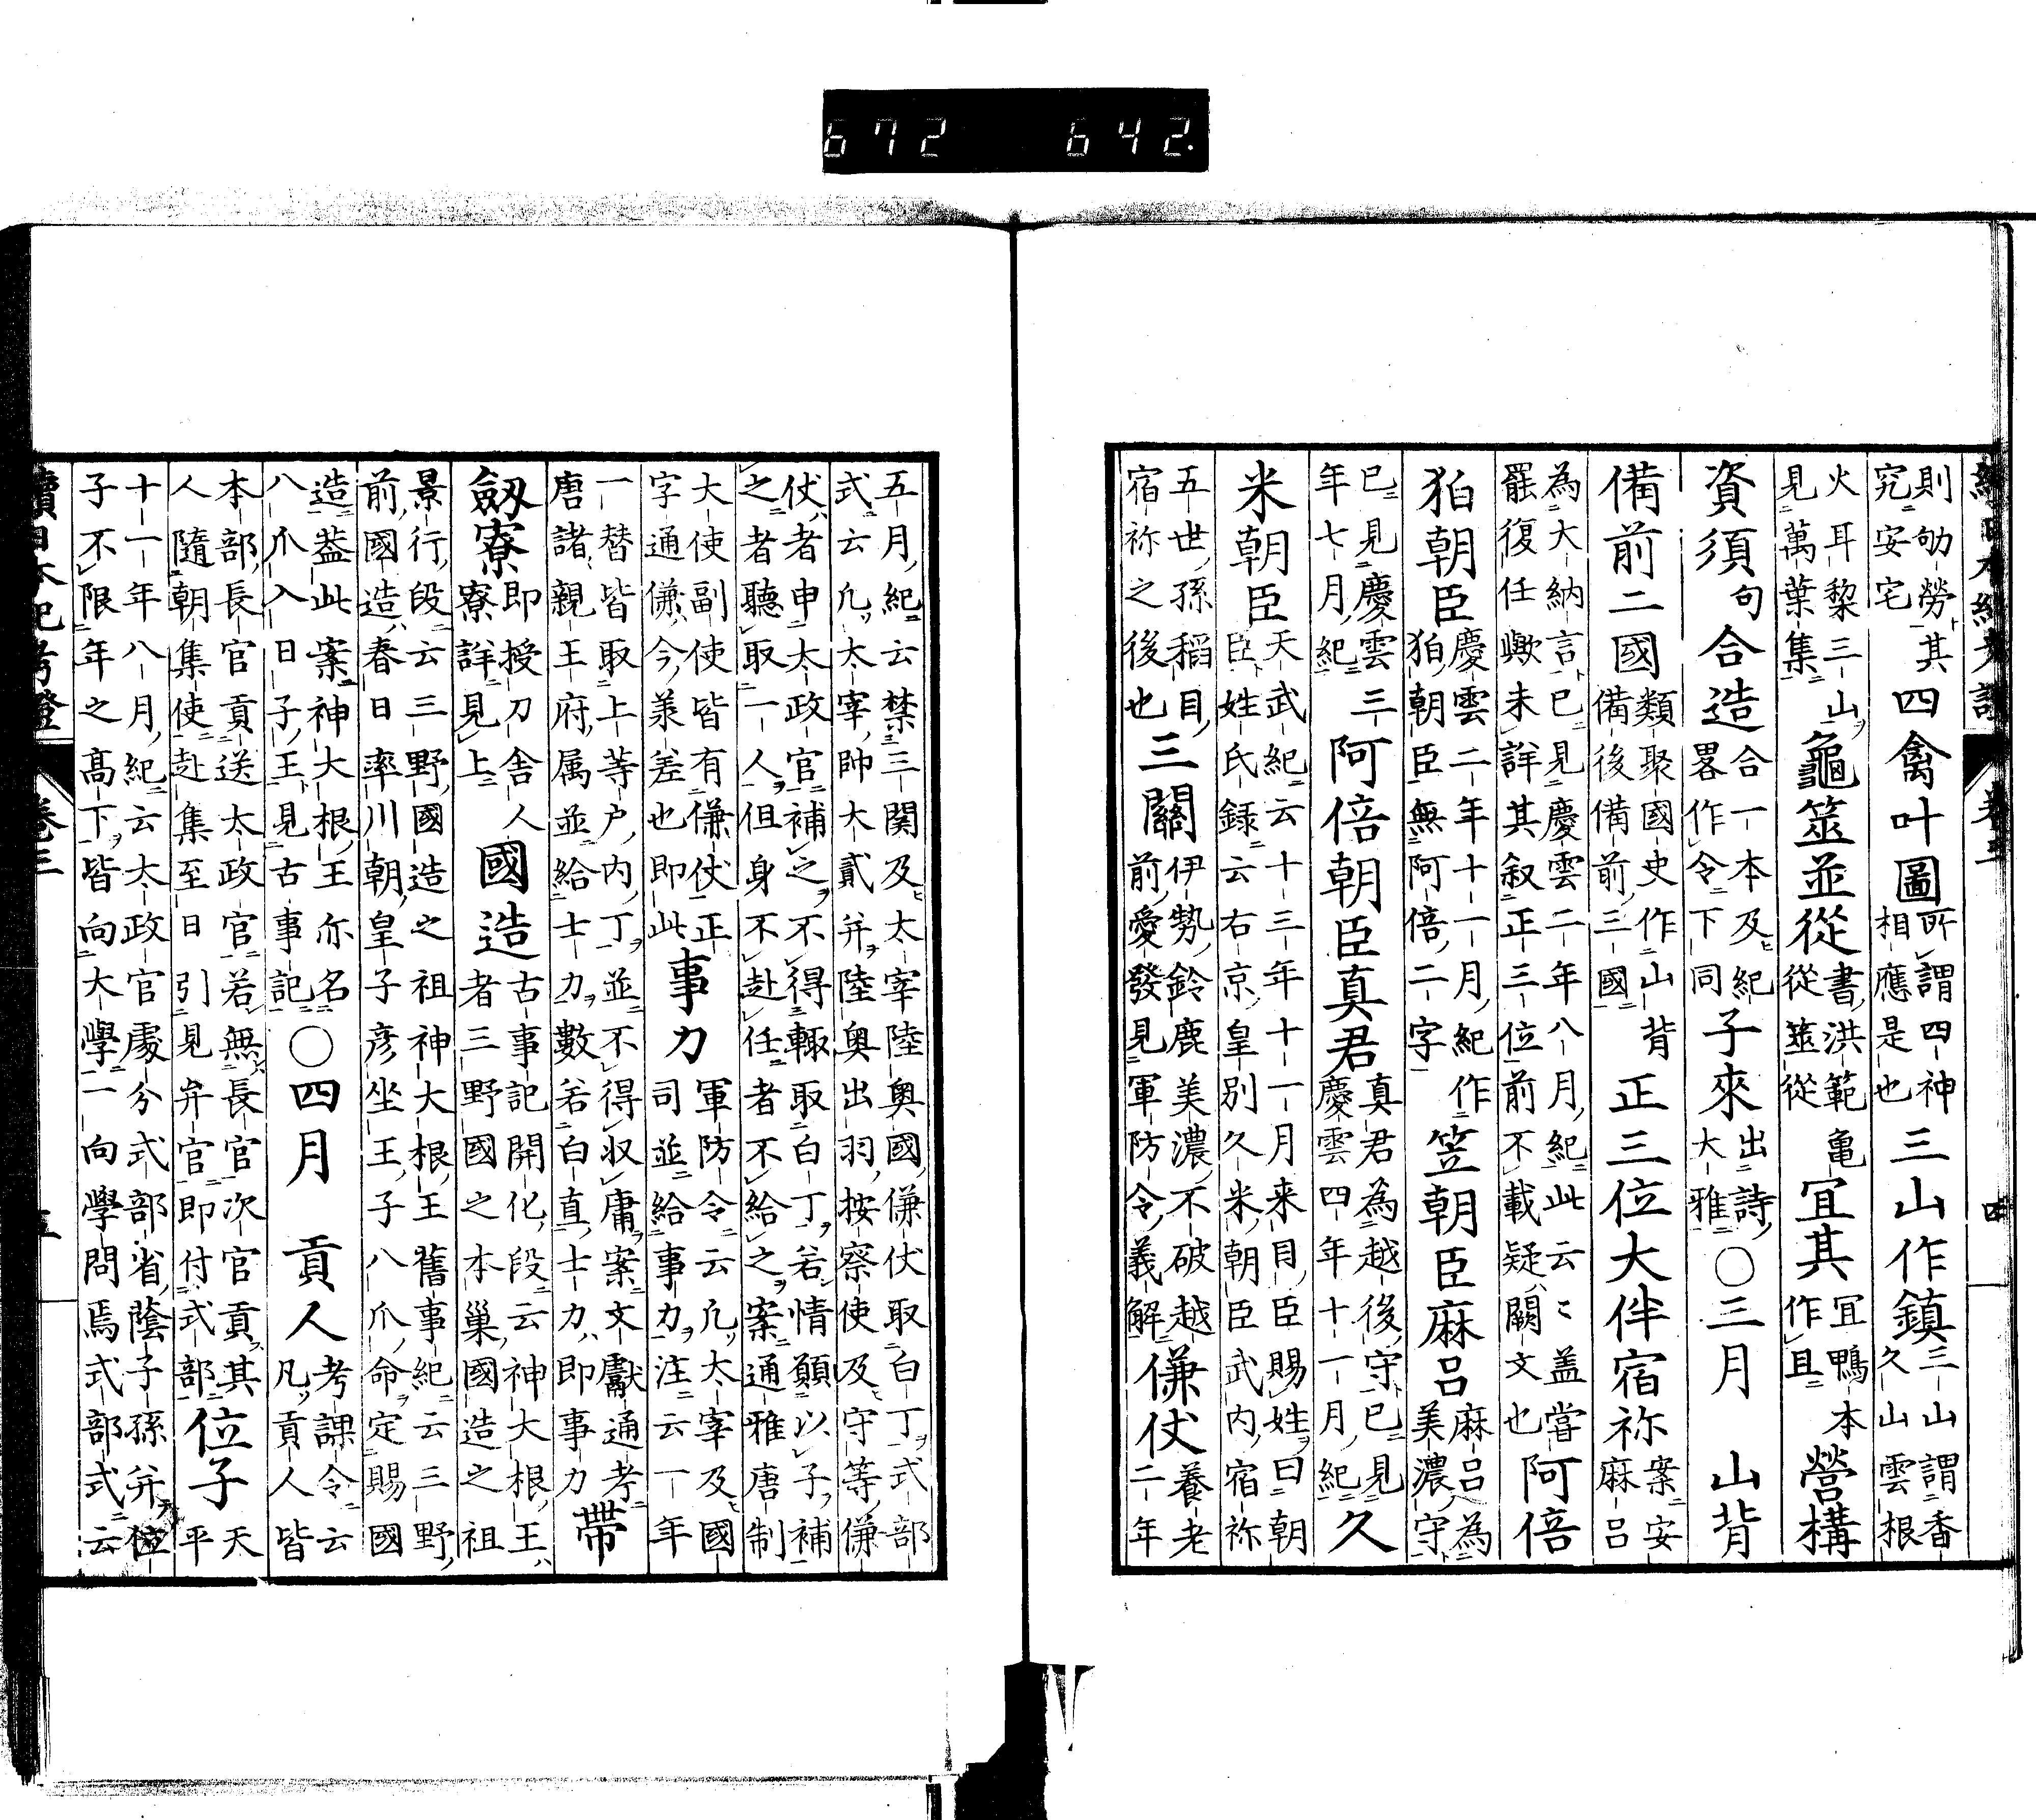 續日本紀考證 卷三 四
則劬勞其究安宅四禽叶圖所謂四神相應是也三山作鎮三山謂香久山雲根
火耳黎三山見萬葉集龜筮並從書洪範亀從筮從宜其宜鴨本作且營構
資須句合造合一本及紀畧作令下同子來出詩大雅○三月 山背
備前二國類聚國史作山背備後備前三國正三位大伴宿祢案安麻呂
為大納言已見慶雲二年八月紀此云〻盖當罷復任歟未詳其叙正三位前不載疑闕文也阿倍
狛朝臣慶雲二年十一月紀作狛朝臣無阿倍二字笠朝臣麻呂麻呂為美濃守
已見慶雲三年七月紀阿倍朝臣真君真君為越後守已見慶雲四年十一月紀久
米朝臣天武紀云十三年十一月来目臣賜姓曰朝臣姓氏録云右京皇別久米朝臣武内宿祢
五世孫稻目宿祢之後也三關伊勢鈴鹿美濃不破越前愛發見軍防令義解傔仗養老二年
五月紀云禁三関及太宰陸奥國傔仗取白丁式部式云凡太宰帥大貳并陸奥出羽按察使及守等傔
仗者申太政官補之不得輙取白丁若情願以子補之者聽取一人但身不赴任者不給之案通雅唐制
大使副使皆有傔仗正字通傔今羕差也即此事力軍防令云凡太宰及國司並給事力注云一年
一替皆取上等户内丁並不得収庸案文獻通考唐諸親王府属並給士力數若白直士力即事力帶
劔寮即授刀舎人寮詳見上國造古事記開化段云神大根王者三野國之本巣國造之祖
景行段云三野國造之祖神大根王舊事紀云三野前國造春日率川朝皇子彦坐王子八爪命定賜國
造葢此案神大根王亦名八爪入日子王見古事記○四月 貢人考課令云凡貢人皆
本部長官貢送太政官若無長官次官貢其人隨朝集使赴集至日引見弁官即付式部位子天平
十一年八月紀云太政官處分式部省蔭子孫并位子不限年之高下皆向大學一向學問焉式部式云
續日本紀考證 卷三 五
672 642.